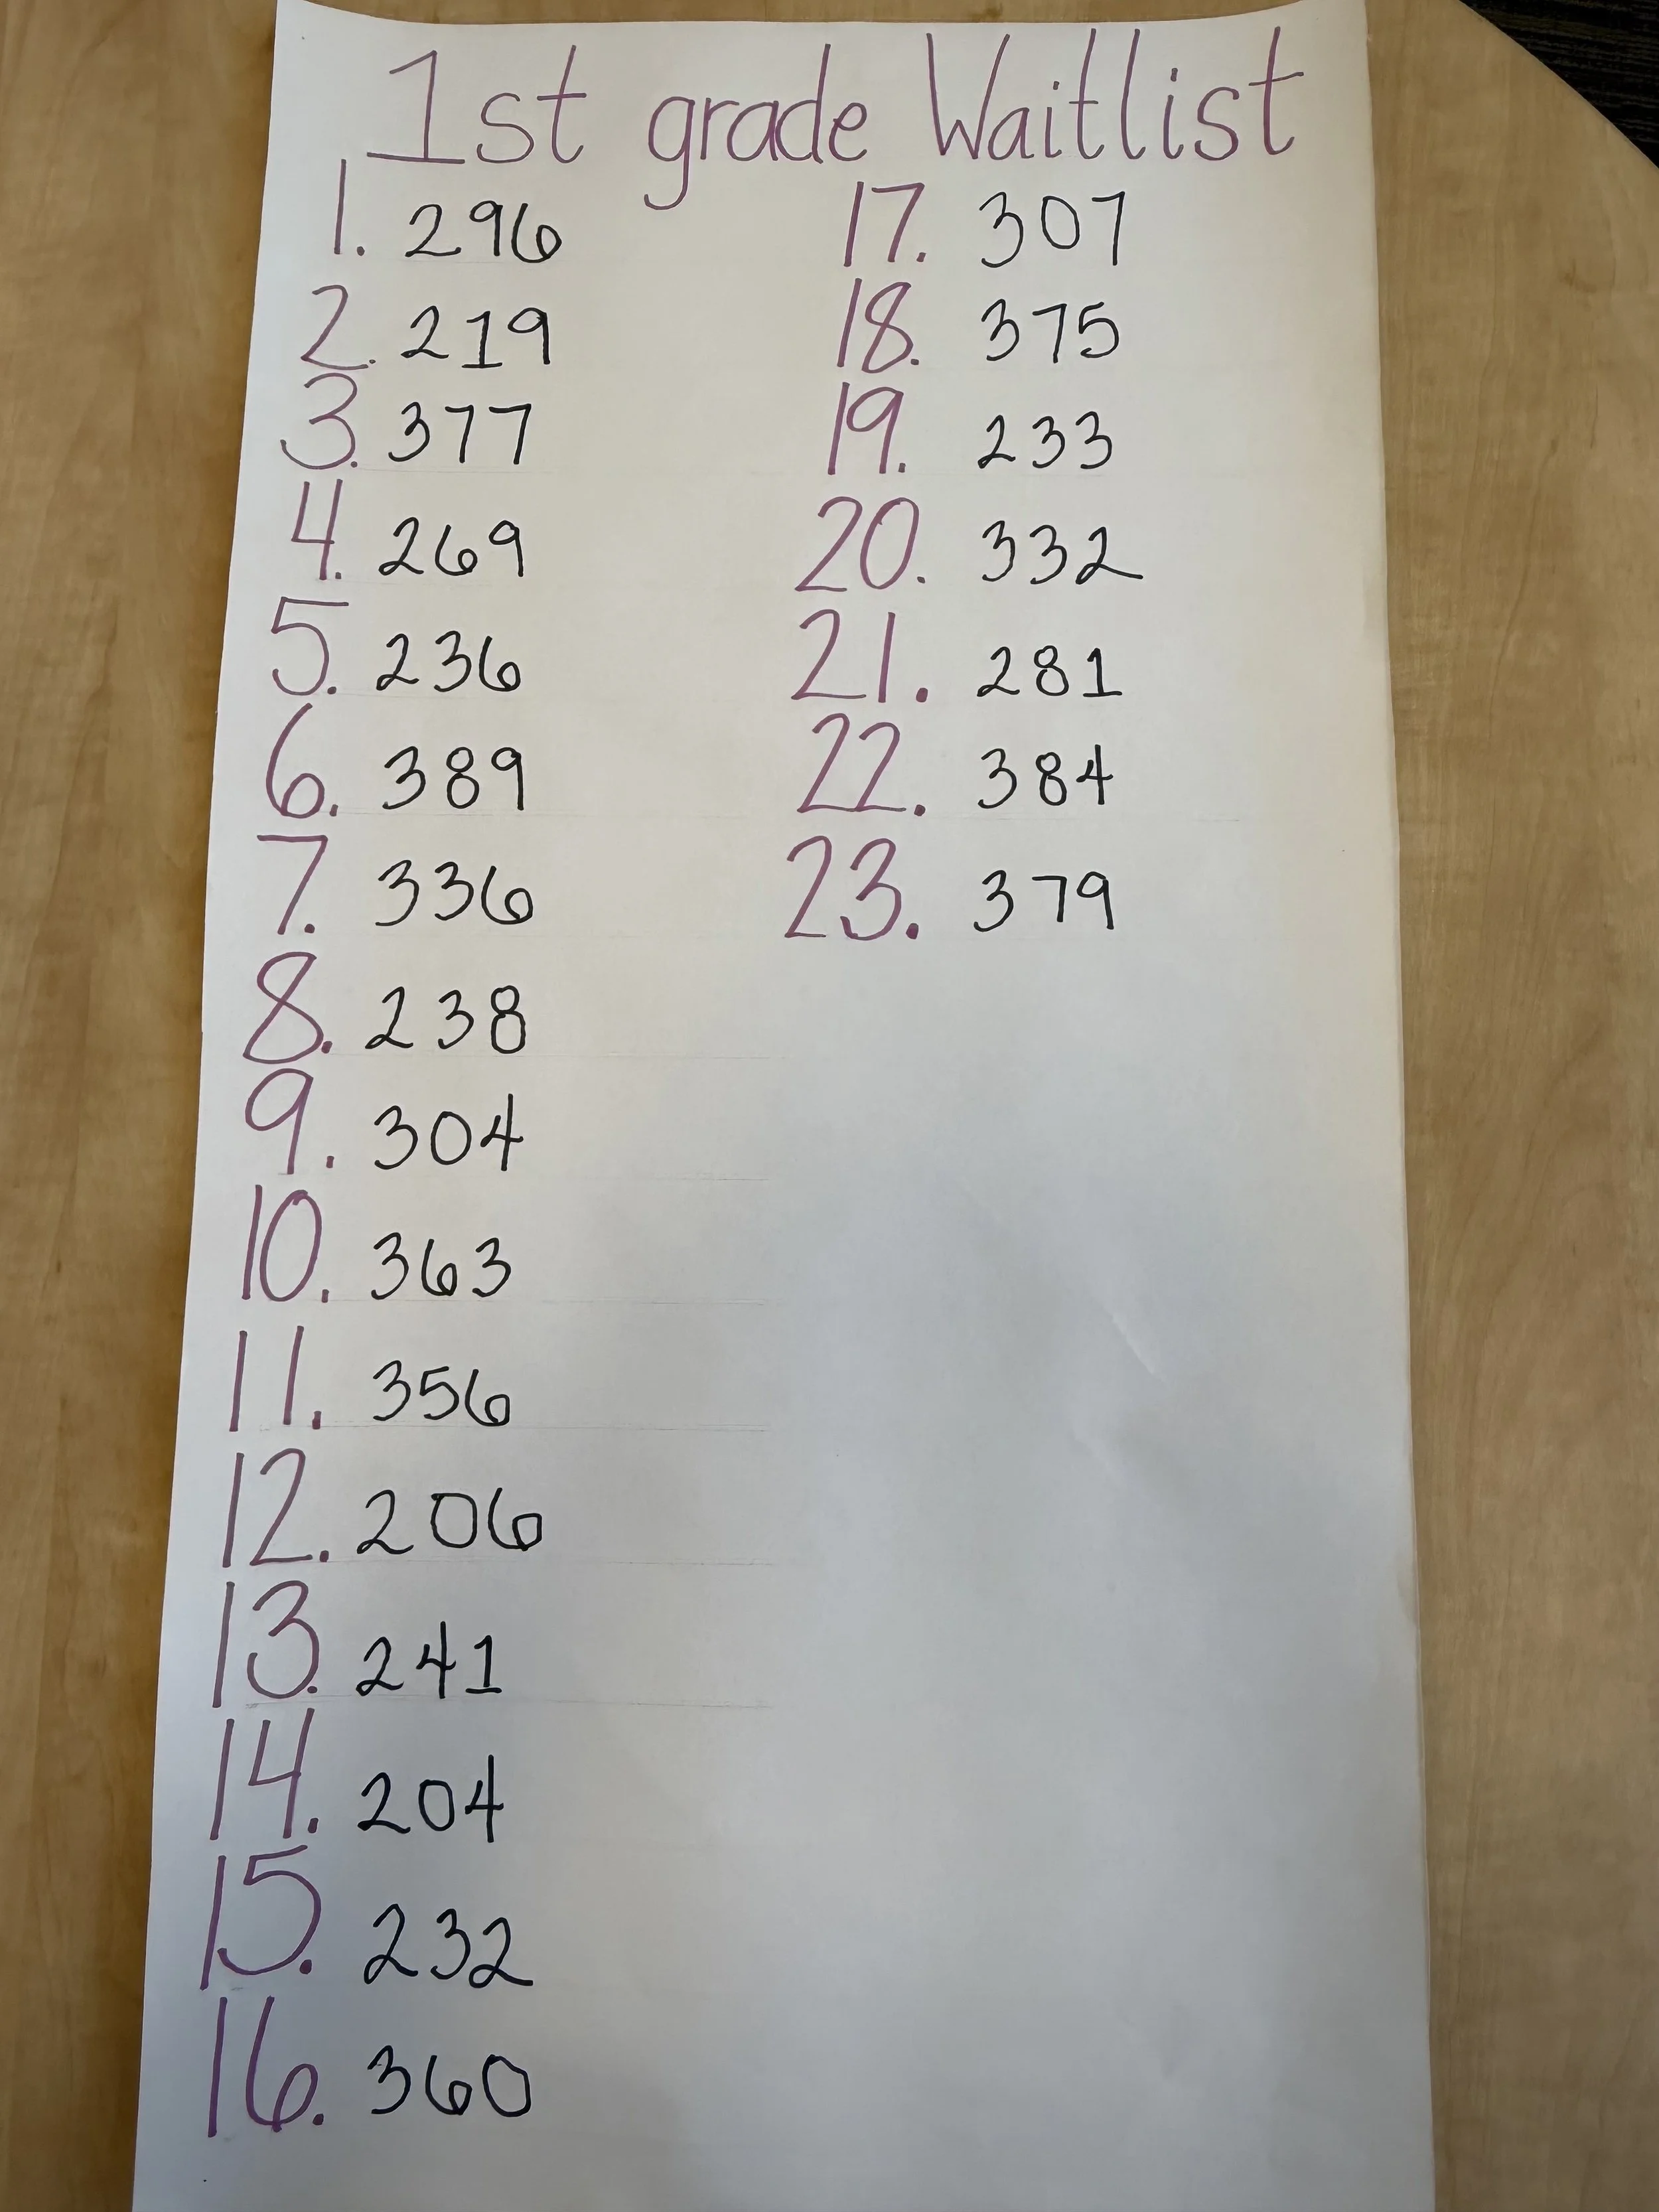 1st grade Waitlist
1. 296
2. 219
3. 377
4. 269
5. 236
6. 389
7. 336
8. 238
9. 304
10. 363
11. 356
12. 206
13. 241
14. 204
15. 232
16. 360
17. 307
18. 375
19. 233
20. 332
21. 281
22. 384
23. 379